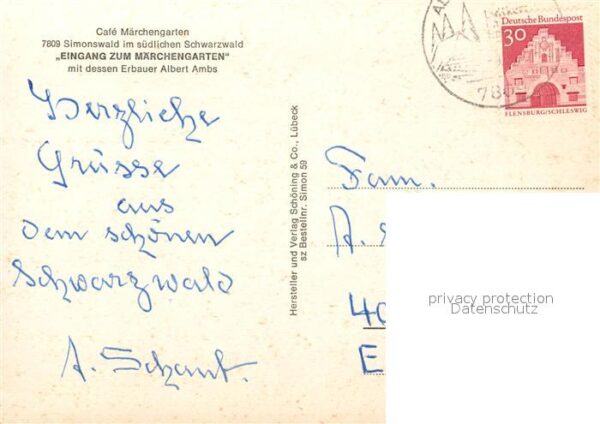 Café Märchengarten
7809 Simonswald im südlichen Schwarzwald
„EINGANG ZUM MÄRCHENGARTEN"
mit dessen Erbauer Albert Ambs
Herzliche
Grüsse
aus
dem schönen
Schwarzwald
A.
Hersteller und Verlag Schöning & Co., Lübeck
sz Bestellnr. Simon 59
Deutsche Bundespost
30
FLENSBURG/SCHLESWIG
780
Fam.
A.
40
E
privacy protection
Datenschutz